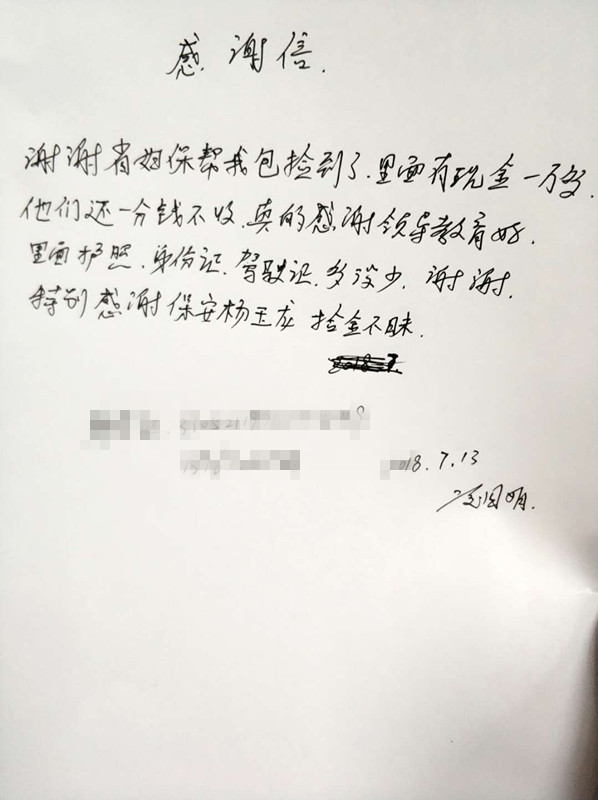 感谢信.
谢谢省妇保帮我包捡到了.里面有现金一万多.
他们还一分钱不收.真的感谢领导教育好.
里面护照.身份证.驾驶证.多没少.谢谢.
特别感谢保安杨玉龙 拾金不昧.
018.7.13